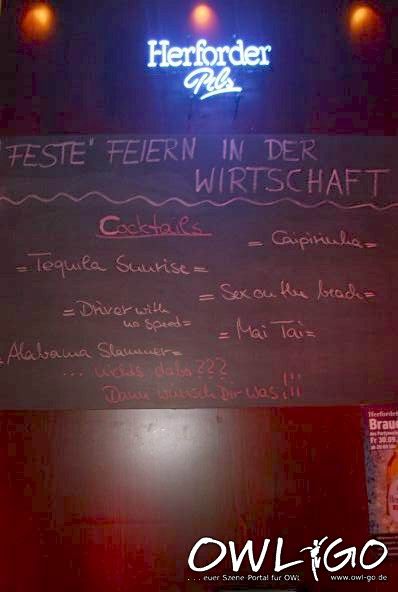 Herforder
Pils
"FESTE" FEIERN IN DER
WIRTSCHAFT
Cocktails
= Caipirinha =
= Tequila Sunrise =
= Sex on the beach =
= Driver with
no speed =
= Mai Tai =
Alabama Slammer =
... nichts dabei ???
Dann wünsch Dir was !!!
Herforder
Brau
Fr 30.09.
OWL GO
. . . euer Szene Portal für OWL
www.owl-go.de